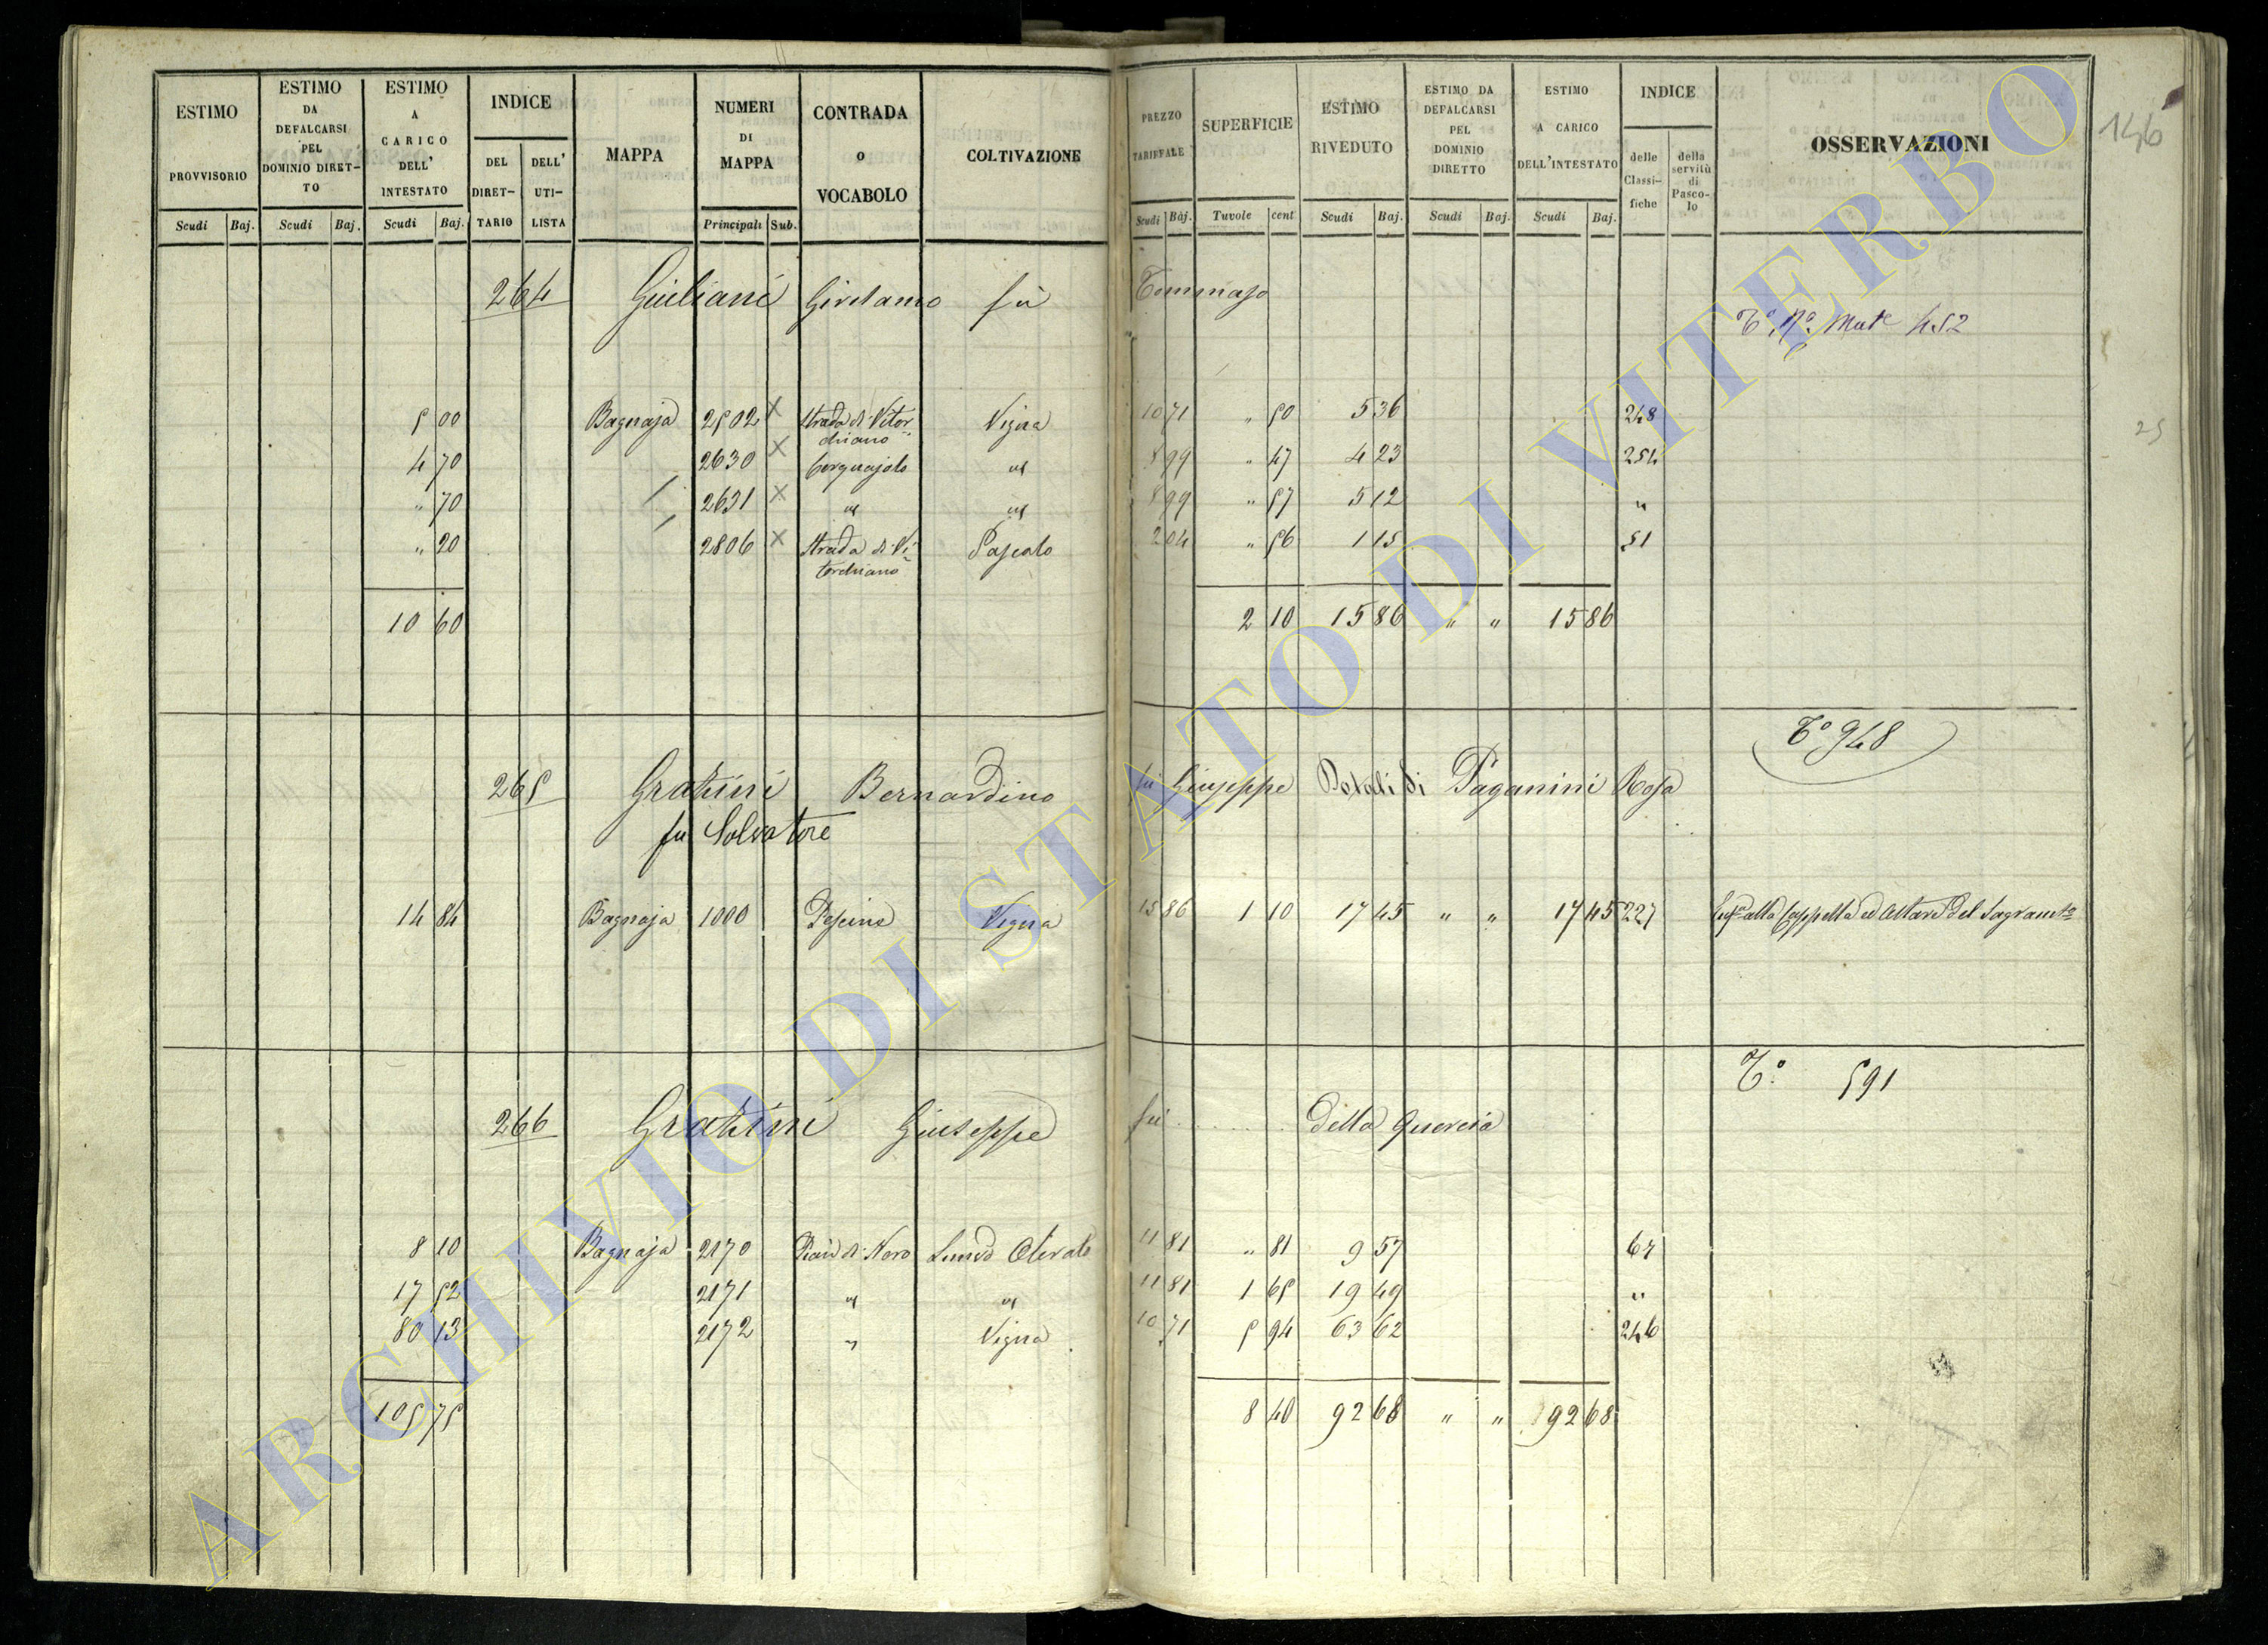 ESTIMO PROVVISORIO Scudi Baj.
ESTIMO DA DEFALCARSI PEL DOMINIO DIRET-TO Scudi Baj.
ESTIMO A CARICO DELL' INTESTATO Scudi Baj.
INDICE DEL DIRET-TARIO DELL' UTI-LISTA
MAPPA
NUMERI DI MAPPA Principali Sub.
CONTRADA O VOCABOLO
COLTIVAZIONE
PREZZO TARIFFALE Scudi Baj.
SUPERFICIE Tavole cent
ESTIMO RIVEDUTO Scudi Baj.
ESTIMO DA DEFALCARSI PEL DOMINIO DIRETTO Scudi Baj.
ESTIMO A CARICO DELL'INTESTATO Scudi Baj.
INDICE delle Classi-fiche della servitù di Pasco-lo
OSSERVAZIONI
146
264 Giuliani Girolamo fù Tommaso
452
25
5 00 Bagnaja 2502 × Strada di Vitorchiano Vigna 10 71 " 50 5 36 248
4 70 2630 × " 8 99 " 47 4 23 254
" 70 2631 × " " 8 99 " 57 5 12 "
" 20 2806 × Strada di Vitorchiano Pascolo 2 04 " 56 1 15 51
10 60 2 10 15 86 " " 15 86
T.o 948
265 Gratini Bernardino fù Giuseppe Dotali di Paganini Rosa
fu Salvatore
14 84 Bagnaja 1000 Vigna 15 86 1 10 17 45 " " 17 45 227 alla Cappella ed Altare del Sagramto
T.o 591
266 Gratini Giuseppe fù .......... della Quercia
8 10 Bagnaja 2170 Pian di Nero Olivato 11 81 " 81 9 57 67
17 52 2171 " " 11 81 1 65 19 49 "
80 13 2172 " Vigna 10 71 5 94 63 62 246
105 75 8 40 92 68 " " 92 68
ARCHIVIO DI STATO DI VITERBO